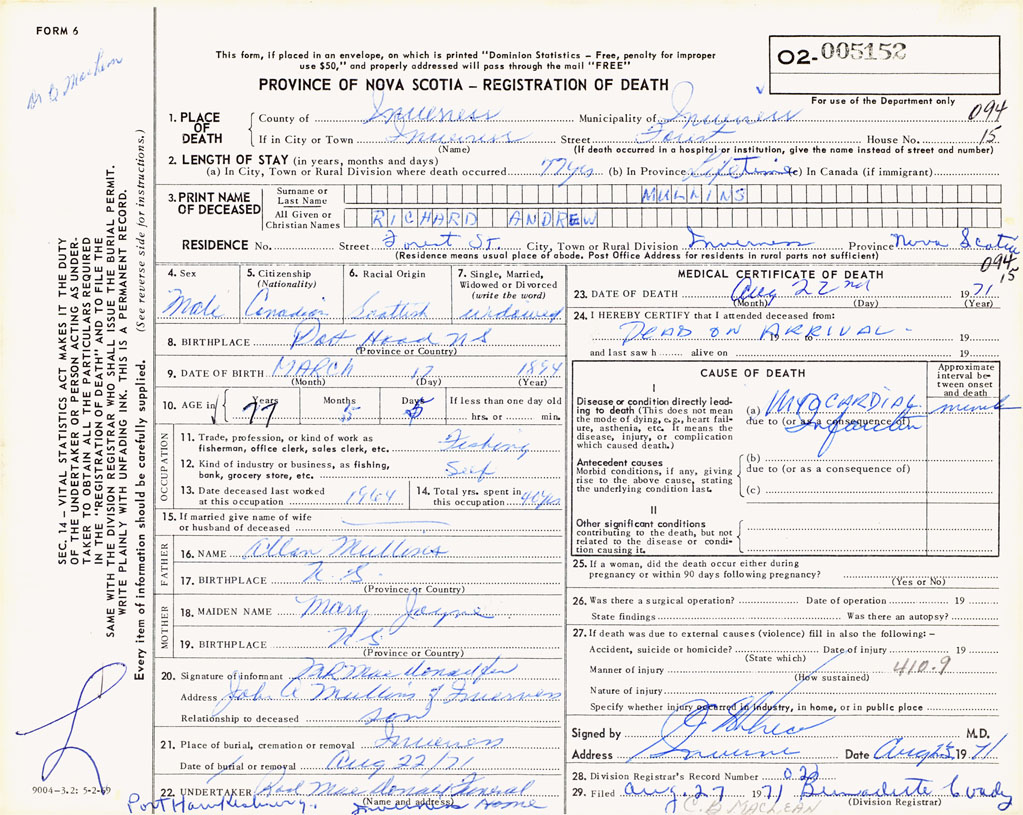 FORM 6
This form, if placed in an envelope, on which is printed "Dominion Statistics – Free, penalty for improper
use $50," and properly addressed will pass through the mail "FREE"
02-005152
PROVINCE OF NOVA SCOTIA – REGISTRATION OF DEATH
For use of the Department only
094
15
1. PLACE OF DEATH
County of Inverness Municipality of Inverness
If in City or Town Inverness Street Forest House No.
(Name) (If death occurred in a hospital or institution, give the name instead of street and number)
2. LENGTH OF STAY (in years, months and days)
(a) In City, Town or Rural Division where death occurred 77yrs (b) In Province Lifetime (c) In Canada (if immigrant)
3. PRINT NAME OF DECEASED
Surname or Last Name MULLINS
All Given or Christian Names RICHARD ANDREW
RESIDENCE No. Street Forest St. City, Town or Rural Division Inverness Province Nova Scotia
(Residence means usual place of abode. Post Office Address for residents in rural parts not sufficient)
094
15
4. Sex
Male
5. Citizenship (Nationality)
Canadian
6. Racial Origin
Scottish
7. Single, Married, Widowed or Divorced (write the word)
widowed
8. BIRTHPLACE Port Hood NS
(Province or Country)
9. DATE OF BIRTH MARCH 17 1894
(Month) (Day) (Year)
10. AGE in
Years 77
Months 5
Days 5
If less than one day old
hrs. or min.
OCCUPATION
11. Trade, profession, or kind of work as fisherman, office clerk, sales clerk, etc. Fishing
12. Kind of industry or business, as fishing, bank, grocery store, etc. Self
13. Date deceased last worked at this occupation 1964
14. Total yrs. spent in this occupation 40yrs
15. If married give name of wife or husband of deceased
FATHER
16. NAME Allan Mullins
17. BIRTHPLACE N.S.
(Province or Country)
MOTHER
18. MAIDEN NAME Mary Jayne
19. BIRTHPLACE NS
(Province or Country)
20. Signature of informant
Address Joh. A Mullins of Inverness
Relationship to deceased son
21. Place of burial, cremation or removal Inverness
Date of burial or removal Aug 22/71
22. UNDERTAKER Rod MacDonald Funeral Home
(Name and address)
Port Hawkesbury. Inverness
MEDICAL CERTIFICATE OF DEATH
23. DATE OF DEATH Aug 22nd 1971
(Month) (Day) (Year)
24. I HEREBY CERTIFY that I attended deceased from:
DEAD ON ARRIVAL -
19 to 19
and last saw h alive on 19
CAUSE OF DEATH
Approximate interval between onset and death
I
Disease or condition directly leading to death (This does not mean the mode of dying, e.g., heart failure, asthenia, etc. It means the disease, injury, or complication which caused death.)
(a) MYOCARDIAL Infarction
due to (or as a consequence of)
Antecedent causes
Morbid conditions, if any, giving rise to the above cause, stating the underlying condition last.
(b)
due to (or as a consequence of)
(c)
II
Other significant conditions contributing to the death, but not related to the disease or condition causing it.
25. If a woman, did the death occur either during pregnancy or within 90 days following pregnancy?
(Yes or No)
26. Was there a surgical operation? Date of operation 19
State findings Was there an autopsy?
27. If death was due to external causes (violence) fill in also the following: –
Accident, suicide or homicide? Date of injury 19
(State which)
Manner of injury 410.9
(How sustained)
Nature of injury
Specify whether injury occurred in industry, in home, or in public place
Signed by M.D.
Address Inverness Date Aug 25, 1971
28. Division Registrar's Record Number 022
29. Filed Aug. 27 1971 Bernadette
(Division Registrar)
C. B MACLEAN
SEC. 14 – VITAL STATISTICS ACT MAKES IT THE DUTY
OF THE UNDERTAKER OR PERSON ACTING AS UNDER-
TAKER TO OBTAIN ALL THE PARTICULARS REQUIRED
IN THE "REGISTRATION OF DEATH" AND TO FILE THE
SAME WITH THE DIVISION REGISTRAR WHO SHALL ISSUE THE BURIAL PERMIT.
WRITE PLAINLY WITH UNFADING INK. THIS IS A PERMANENT RECORD.
Every item of information should be carefully supplied. (See reverse side for instructions.)
9004-3.2: 5-2-69